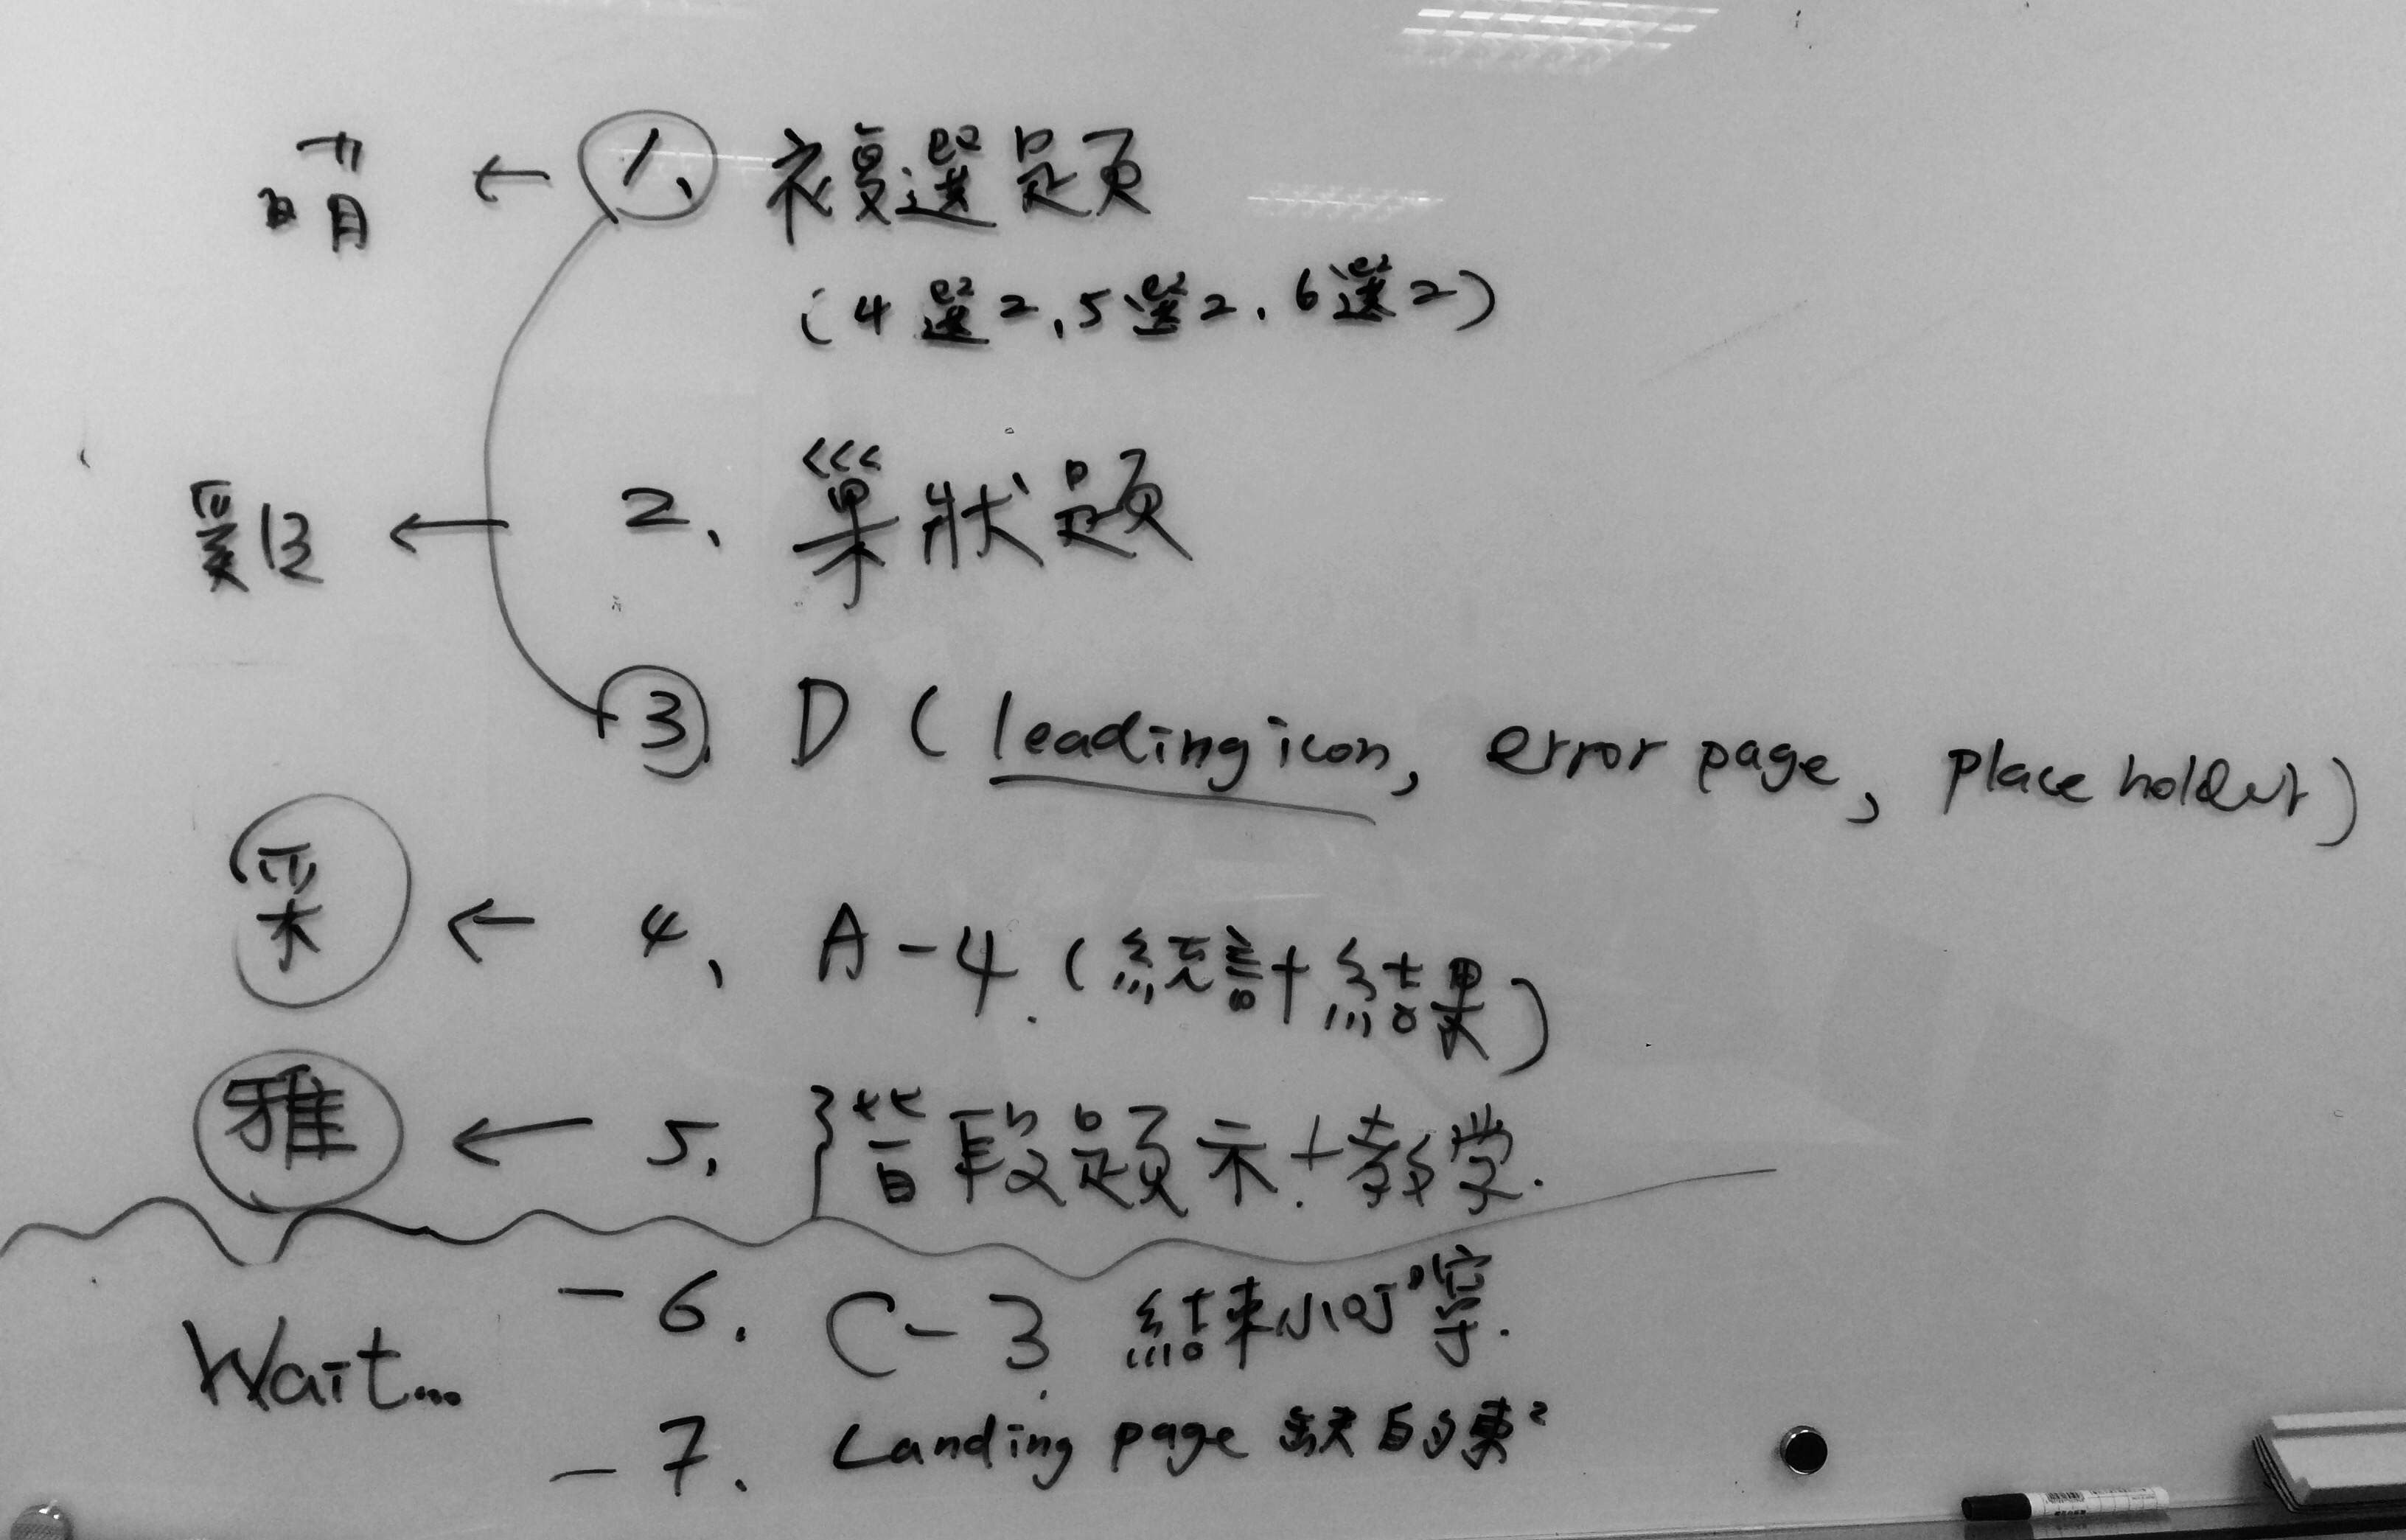 晴 ← 1、複選題
(4選2, 5選2, 6選2)
← 2、巢狀題
3. D (leading icon, error page, place holder)
采 ← 4、A-4. (統計結果)
雅 ← 5、階段題示+教学.
Wait...
- 6. C-3. 結束小叮嚀.
- 7. Landing page 缺的東²